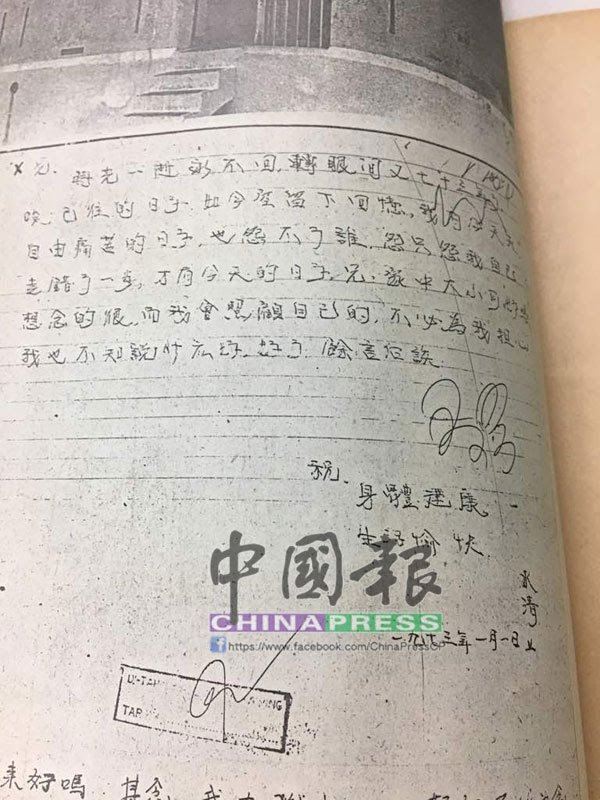 兄. 時光一逝永不回,轉眼间又七十三年
唉,已往的日子,如今空留下回憶,我內心天天
自由痛苦的日子,也怨不了誰,怨只怨我自己
走錯了一步,才有今天的日子,兄,家中大小可好嗎
想念的很,而我會照顧自己的,不必為我担心
我也不知説什広好,好了 餘言后談
祝.
身體健康
生活愉快
水清
一九七三年一月一日上
中國報
CHINA PRESS
https://www.facebook.com/ChinaPressCP
TAP
來好嗎 甚念 我